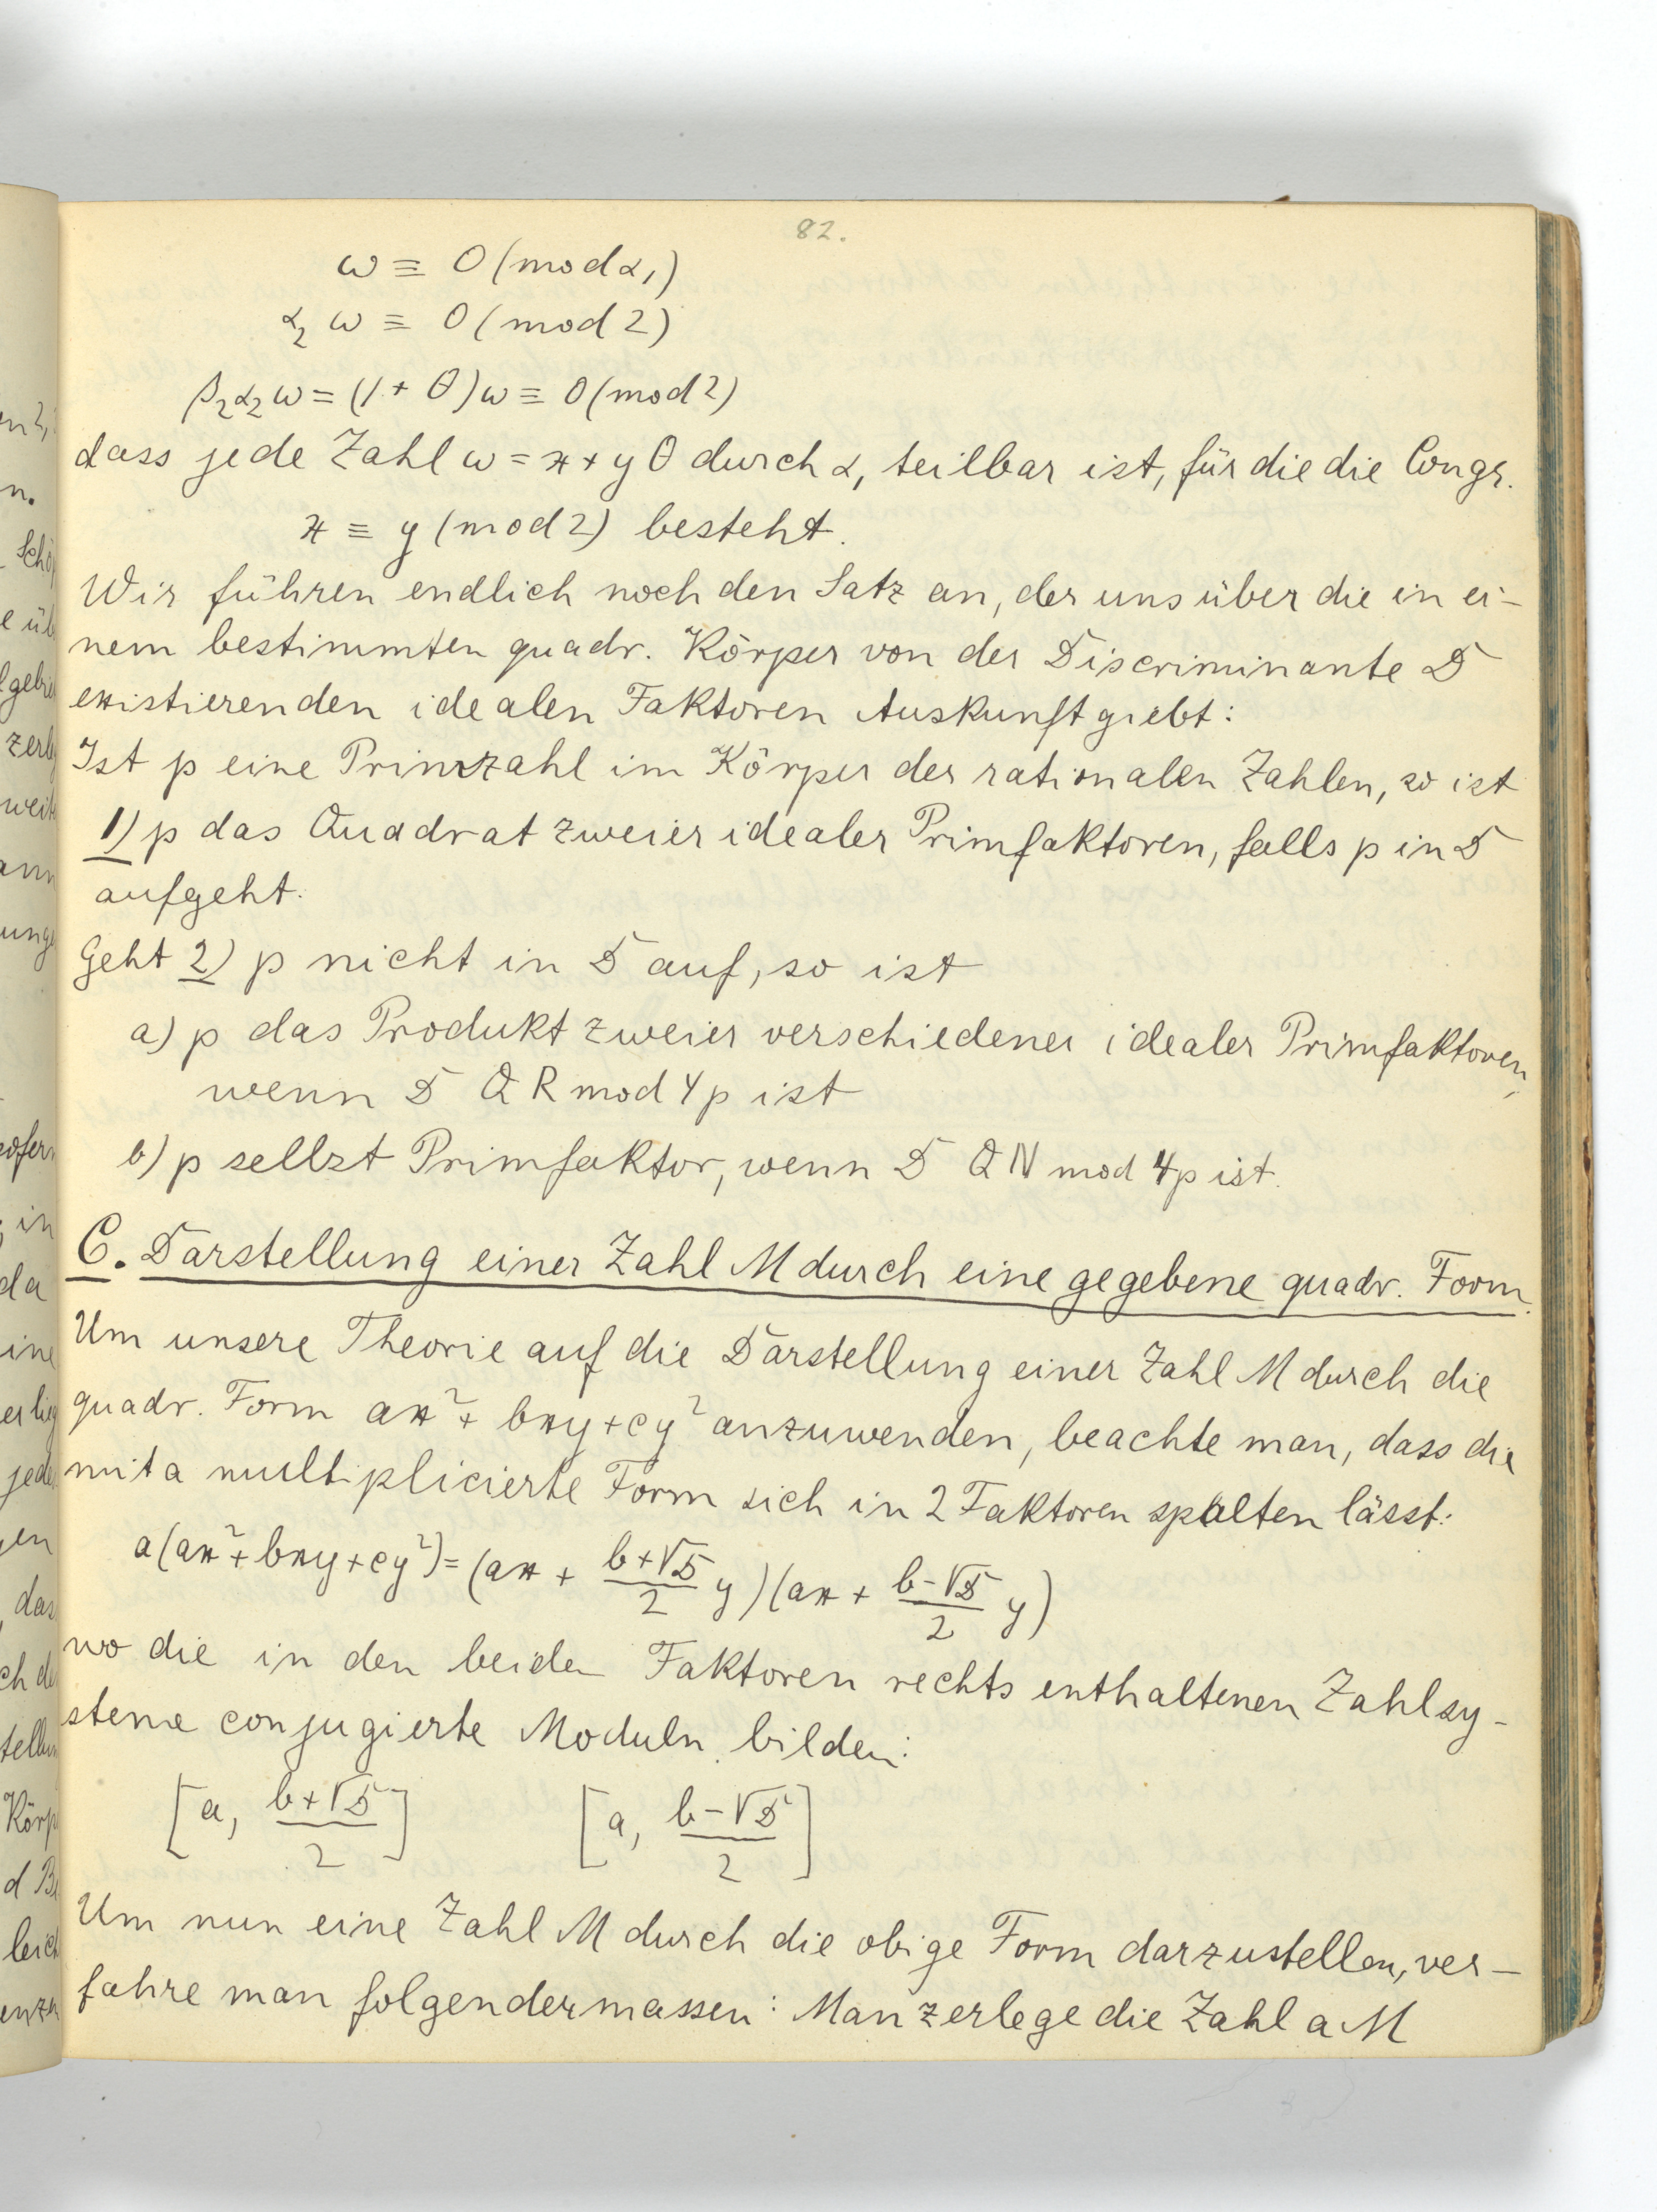 82.
ω ≡ 0 (mod α₁)
α₂ ω ≡ 0 (mod 2)
β₂α₂ω = (1 + θ)ω ≡ 0 (mod 2)
dass jede Zahl ω = x + y θ durch α₁ teilbar ist, für die die Congr.
x ≡ y (mod 2) besteht.
Wir führen endlich noch den Satz an, der uns über die in ei-
nem bestimmten quadr. Körper von der Discriminante D
existierenden idealen Faktoren Auskunft giebt:
Ist p eine Primzahl im Körper der rationalen Zahlen, so ist
1) p das Quadrat zweier idealer Primfaktoren, falls p in D
aufgeht.
Geht 2) p nicht in D auf, so ist
a) p das Produkt zweier verschiedener idealer Primfaktoren,
wenn D QR mod 4p ist
b) p selbst Primfaktor, wenn D QN mod 4p ist.
C. Darstellung einer Zahl M durch eine gegebene quadr. Form.
Um unsere Theorie auf die Darstellung einer Zahl M durch die
quadr. Form ax² + bxy + cy² anzuwenden, beachte man, dass die
mit a multiplicierte Form sich in 2 Faktoren spalten lässt:
a(ax² + bxy + cy²) = (ax + (b+√D)/2 y)(ax + (b-√D)/2 y)
wo die in den beiden Faktoren rechts enthaltenen Zahlsy-
steme conjugierte Moduln bilden:
[a, (b+√D)/2] [a, (b-√D)/2]
Um nun eine Zahl M durch die obige Form darzustellen, ver-
fahre man folgendermassen: Man zerlege die Zahl a M